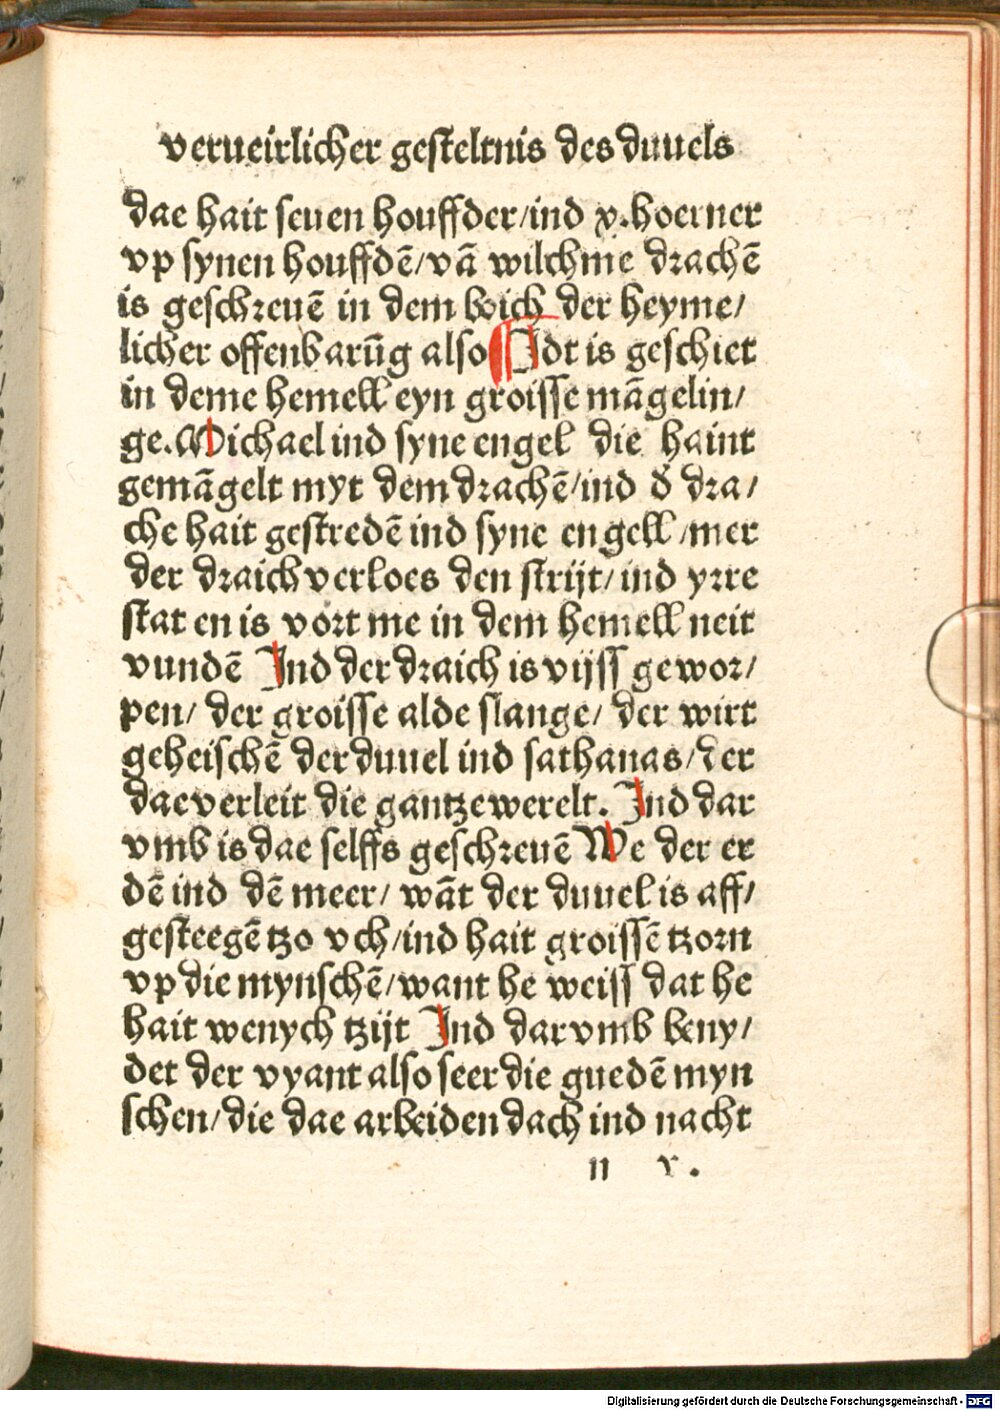 verueirlicher gesteltnis des duuels
dae hait seuen houffder/ind x.hoerner
vp synen houffdē/vā wilchme drachē
is geschreuē in dem boich der heyme/
licher offenbarūg also ¶ Idt is geschiet
in deme hemell eyn groisse māgelin/
ge. Michael ind syne engel die haint
gemāgelt myt dem drachē/ind d̄ dra/
che hait gestredē ind syne engell/mer
der draich verloes den strijt/ind yrre
stat en is vort me in dem hemell neit
vundē Ind der draich is vijss gewor/
pen/ der groisse alde slange/ der wirt
geheischē der duuel ind sathanas/der
dae verleit die gantze werelt. Ind dar
vmb is dae selffs geschreuē We der er
dē ind dē meer/ wāt der duuel is aff/
gesteegē tzo vch/ind hait groissē tzorn
vp die mynschē/want he weiss dat he
hait wenych tzijt Ind darvmb beny/
det der vyant also seer die guedē myn
schen/die dae arbeiden dach ind nacht
n v.
Digitalisierung gefördert durch die Deutsche Forschungsgemeinschaft - DFG